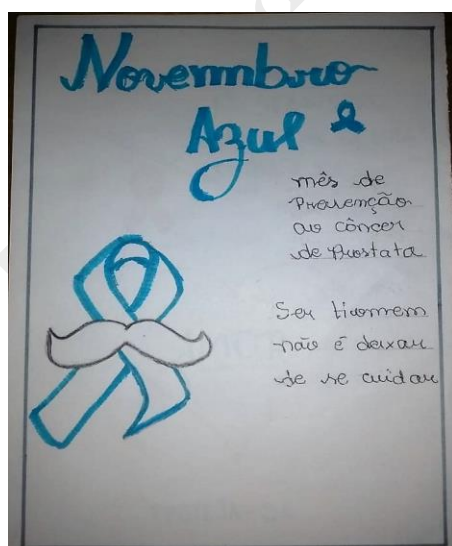 Novembro
Azul
mês de
Prevenção
ao câncer
de Prostata
Ser homem
não é deixar
de se cuidar